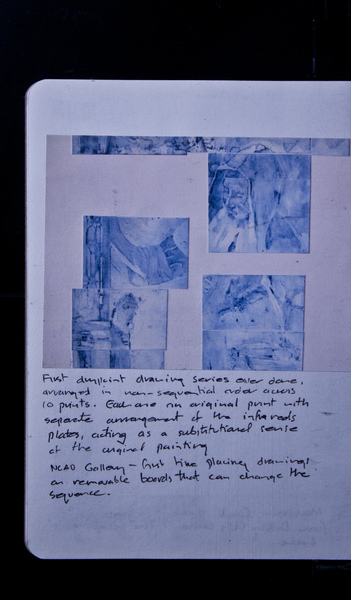 First drypoint drawing series ever done,
arranged in non-sequential order across
10 prints. Each are an original print with
separate arrangement of the
plates, acting as a substitutional sense
of the original painting
NCAD Gallery – first time placing drawings
on removable boards that can change the
sequence.